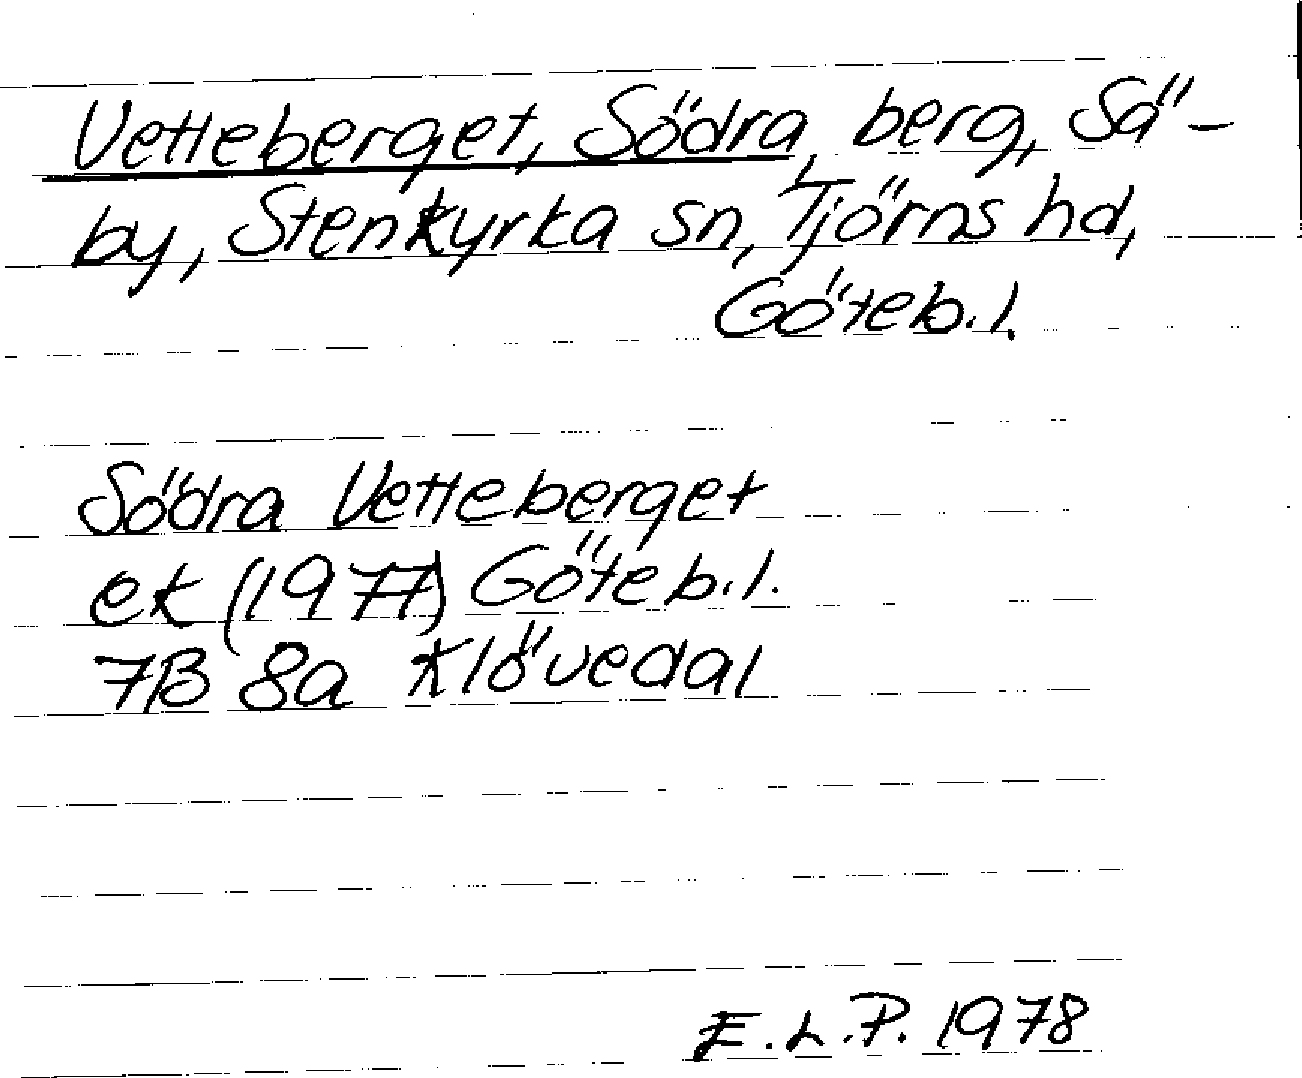 Vetteberget, Södra, berg, Sä-
by, Stenkyrka sn, Tjörns hd,
Göteb.l.
Södra Vetteberget
ek (1977) Göteb.l.
7B 8a Klövedal
E.L.P. 1978